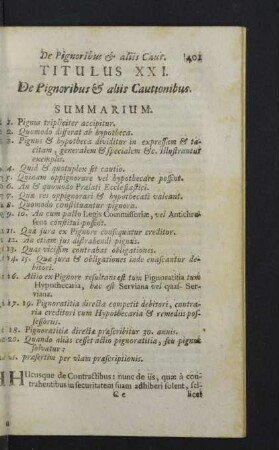 De Pignoribus & aliis Caut. 401
TITULUS XXI.
De Pignoribus & aliis Cautionibus.
SUMMARIUM.
1. Pignus tripliciter accipitur.
2. Quomodo differat ab hypotheca.
3. Pignus & hypotheca dividitur in expressam & ta-
citam, generalem & specialem &c. illustrantur
exemplis.
4. Quid & quotuplex sit cautio.
5. Quinam oppignorare vel hypothecare possint.
6. An & quomodo Prælati Ecclesiastici.
7. Qua res oppignorari & hypothecari valeant.
8. Quomodo constituantur pignora.
9. 10. An cum pacto Legis Commissoriæ, vel Antichre-
seos constitui possint.
11. Quæ jura ex Pignore consequatur creditor.
12. An etiam jus distrahendi pignus.
13. Quas vicissim contrahat obligationes.
14. 15. Quæ jura & obligationes inde enascantur de-
bitori.
16. Actio ex Pignore resultans est tum Pignoratitia tum
Hypothecaria, hæc est Serviana vel quasi Ser-
viana.
17. 19. Pignoratitia directa competit debitori, contra-
ria creditori cum Hypothecaria & remediis pos-
sessoriis.
18. Pignoratitia directa præscribitur 30. annis.
20. Quando aliàs cesset actio pignoratitia, seu pignus
solvatur:
21. præsertim per viam præscriptionis.
HUcusque de Contractibus: nunc de iis, quæ à con-
trahentibus in securitatem suam adhiberi solent, sci-
C c licet